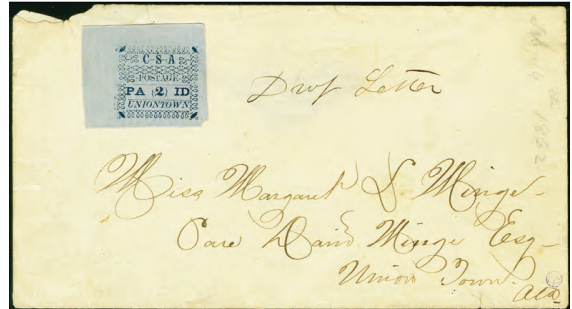 C·S·A
POSTAGE
PA 2 ID
UNIONTOWN
Drop Letter
Miss Margaret S. Minge
Care David Minge Esq
Union Town
Ala
1862